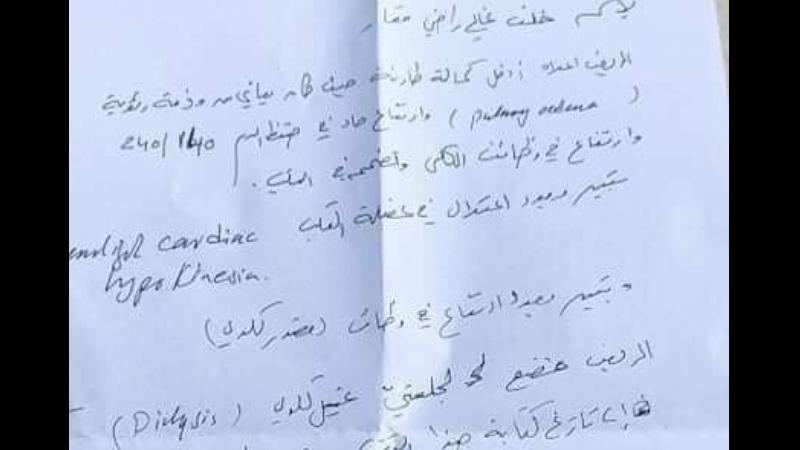 الاسم خلف غالي راضي
المريض اعلاه ادخل كحالة طارئة حيث كان يعاني من وذمة رئوية
(pulmonary oedema) وارتفاع حاد في ضغط الدم 240/140
وارتفاع في وظائف الكلى وتضخم في القلب.
تبين وجود اعتلال في عضلة القلب cardiac
hypokinesia.
وتبين وجود ارتفاع في وظائف (كلوي)
المريض خضع لجلستي غسيل كلوي (Dialysis)
تاريخ كتابة هذا